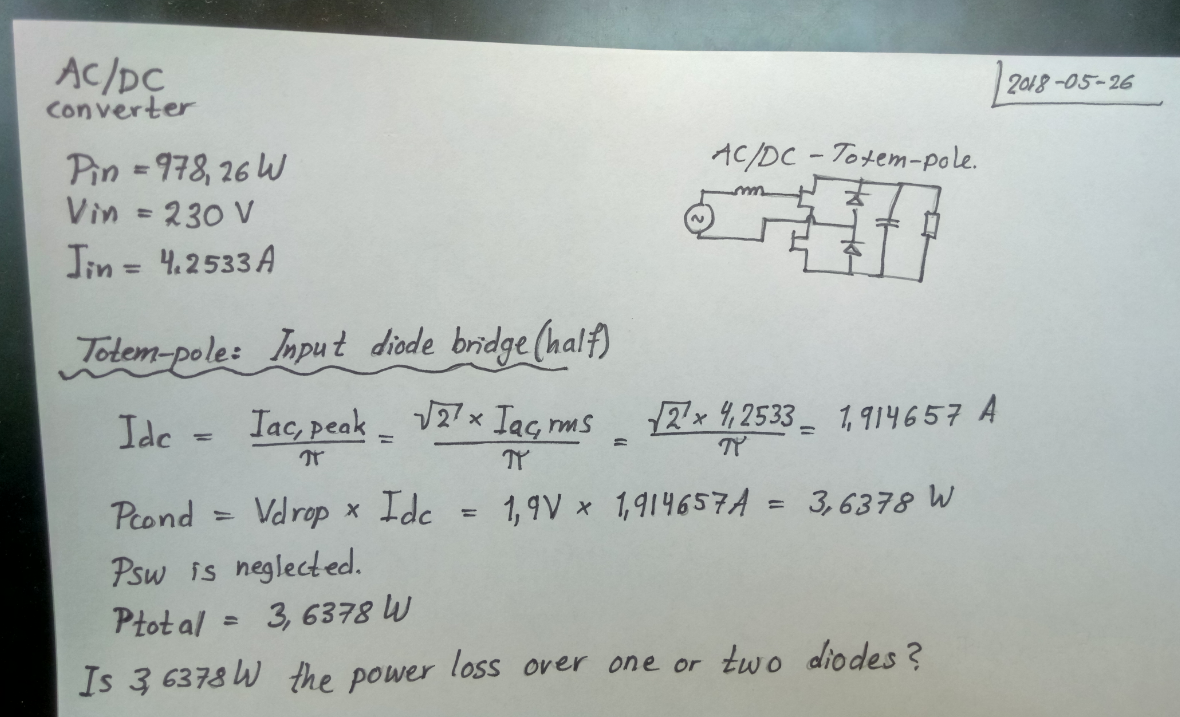 AC/DC
converter
2018-05-26
Pin = 978,26 W
Vin = 230 V
Iin = 4.2533 A
AC/DC - Totem-pole.
~
Totem-pole: Input diode bridge (half)
Idc = Iac, peak / π = √2 × Iac, rms / π = √2 × 4,2533 / π = 1,914657 A
Pcond = Vdrop × Idc = 1,9V × 1,914657A = 3,6378 W
Psw is neglected.
Ptotal = 3,6378 W
Is 3,6378W the power loss over one or two diodes?